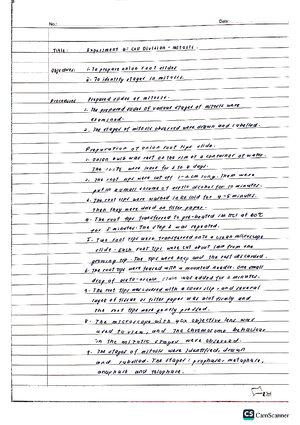 No.: Date:
Title: Experiment 2: Cell Division - Mitosis.
Objectives: i. To prepare onion root slides
ii. To identify stages in mitosis.
Procedures Prepared slides of mitosis.
1. The prepared slides of various stages of mitosis were
examined.
2. The stages of mitosis observed were drawn and labelled.
Preparation of onion root tips slide.
1. Onion bulb was root on the rim of a container of water.
The roots were leave for 2 to 4 days.
2. The root tips were cut off 1-2 cm long. Them were
put in a small volume of acetic alcohol for 10 minutes.
3. The root tips were washed in ice cold for 4-5 minutes.
Then they were dried on filter paper.
4. The root tips transferred to pre-heated 1M HCl at 60°C
for 5 minutes. The step 2 was repeated.
5. Two root tips were transferred onto a clean microscope
slide. Each root tips were cut about 1mm from the
growing tip. The tips were keep and the rest discarded.
6. The root tips were teased with a mounted needle. One small
drop of aceto-orcein stain was added for 2 minutes.
7. The root tips was covered with a cover slip, and several
layer of tissue or filter paper was blot firmly and
the root tips were gently pressed.
8. The microscope with 40x objective lens were
used to view, and the chromosome behaviour
in the mitotic stages were observed.
9. The stages of mitosis were identified, drawn
and labelled. The stages: prophase, metaphase,
anaphase and telophase.
CS CamScanner